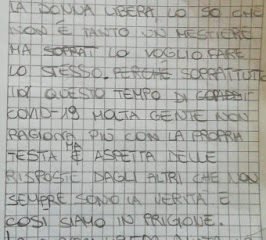 LA DONNA LIBERA, LO SO CHE
NON È TANTO UN MESTIERE
MA SOPRAT LO VOGLIO FARE
LO STESSO. PERCHÉ SOPRATTUTTO
IN QUESTO TEMPO DI
COVID-19 MOLTA GENTE NON
RAGIONA PIÙ CON LA PROPRIA
TESTA MA ASPETTA DELLE
RISPOSTE DAGLI ALTRI CHE NON
SEMPRE SONO LA VERITÀ E
COSÌ SIAMO IN PRIGIONE.